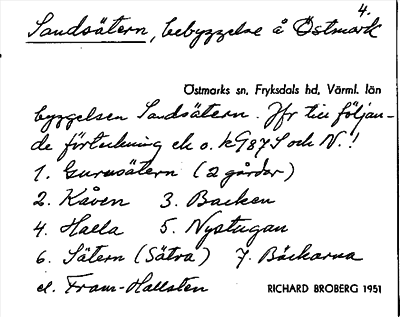 4.
Sandsätern, bebyggelse å Östmark
Östmarks sn, Fryksdals hd, Värml. län
byggelsen Sandsätern. Jfr till följan-
de förteckning ek o. k 987 S och N.!
1. Gurusätern (2 gårdar)
2. Kåven 3. Backen
4. Halla 5. Nystugan
6. Sätern (Sätra) 7. Bäckarna
el. Fram-Hallsten
RICHARD BROBERG 1951